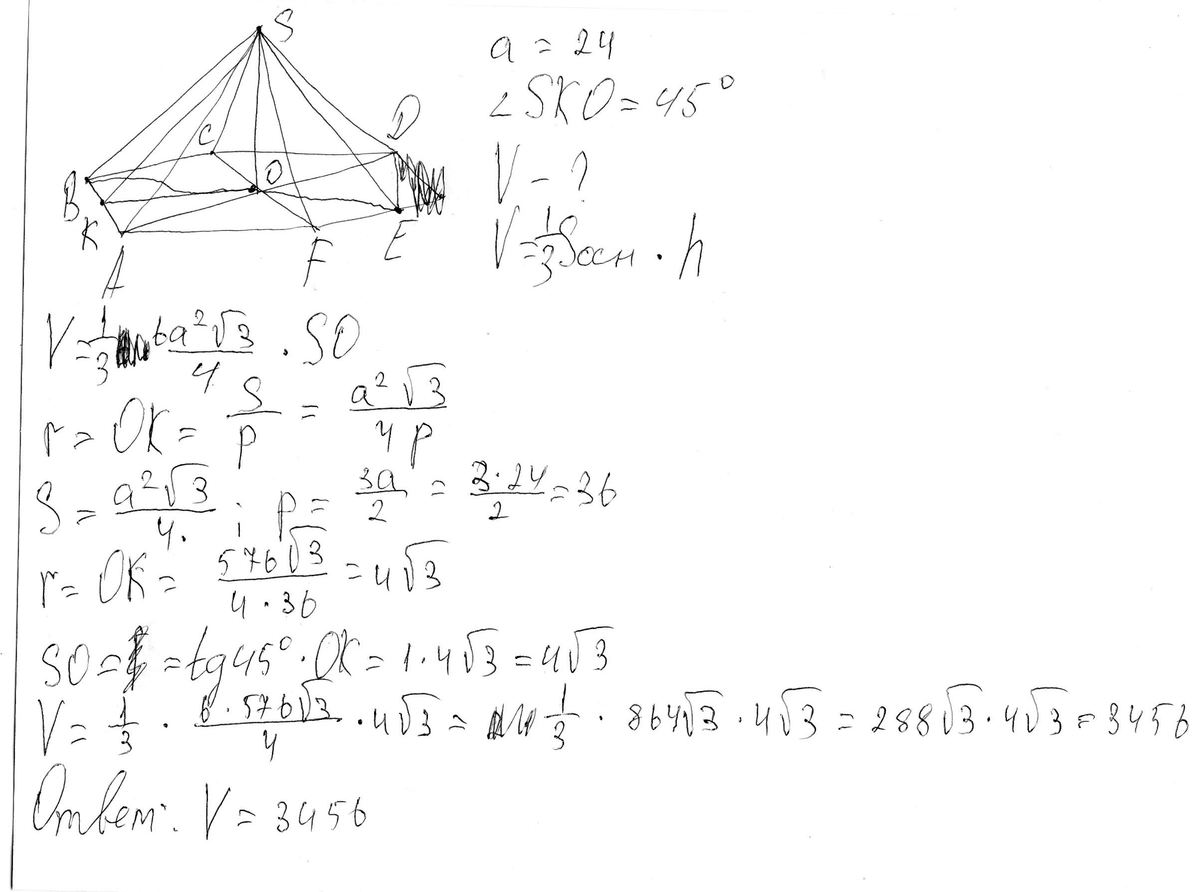 S
a = 24
∠SKO = 45°
C
D
V - ?
O
B
K
V = 1/3 Sосн · h
A
F
E
V = 1/3 6a²√3/4 · SO
r = OK = S/p = a²√3/4p
S = a²√3/4. ; p = 3a/2 = 3·24/2 = 36
r = OK = 576√3/4·36 = 4√3
SO = = tg45° · OK = 1·4√3 = 4√3
V = 1/3 · 6·576√3/4 · 4√3 = 1/3 · 864√3 · 4√3 = 288√3 · 4√3 = 3456
Ответ: V = 3456